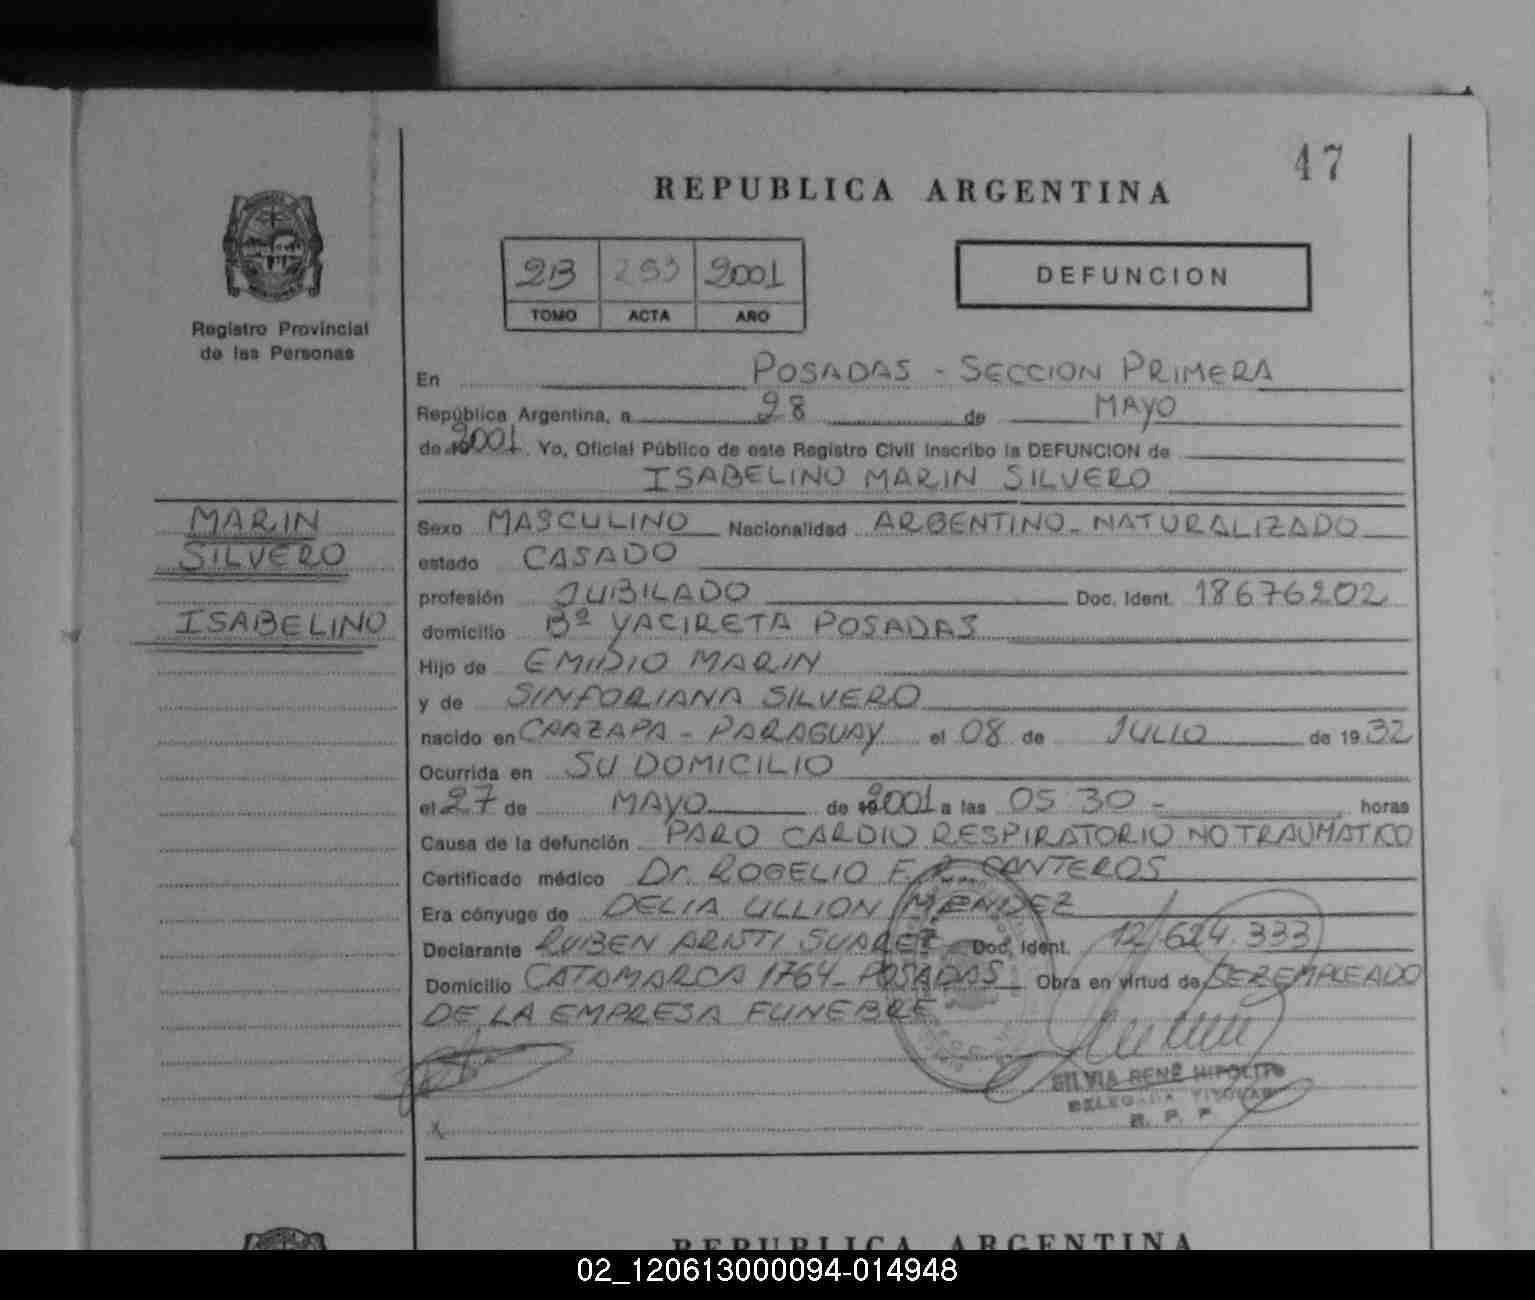 47
REPUBLICA ARGENTINA
2B 253 2001
TOMO ACTA AÑO
DEFUNCION
Registro Provincial
de las Personas
En POSADAS - SECCION PRIMERA
República Argentina, a 28 de MAYO
de 2001. Yo, Oficial Público de este Registro Civil inscribo la DEFUNCION de
ISABELINO MARIN SILVERO
MARIN
SILVERO
ISABELINO
Sexo MASCULINO Nacionalidad ARGENTINO - NATURALIZADO
estado CASADO
profesión JUBILADO Doc. Ident. 18676202
domicilio Bº YACIRETA POSADAS
Hijo de EMIDIO MARIN
y de SINFORIANA SILVERO
nacido en CAAZAPA - PARAGUAY el 08 de JULIO de 1932
Ocurrida en SU DOMICILIO
el 27 de MAYO de 2001 a las 05 30 - horas
Causa de la defunción PARO CARDIO RESPIRATORIO NO TRAUMATICO
Certificado médico Dr. ROGELIO F. R. CANTEROS
Era cónyuge de DELIA ULLION MENDEZ
Declarante RUBEN ARISTI SUAREZ Doc. Ident. 12.624.333
Domicilio CATAMARCA 1764 - POSADAS Obra en virtud de SER EMPLEADO
DE LA EMPRESA FUNEBRE
SILVIA RENÉ HIPOLITO
DELEGADA TITULAR
R. P. P.
REPUBLICA ARGENTINA
02_120613000094-014948